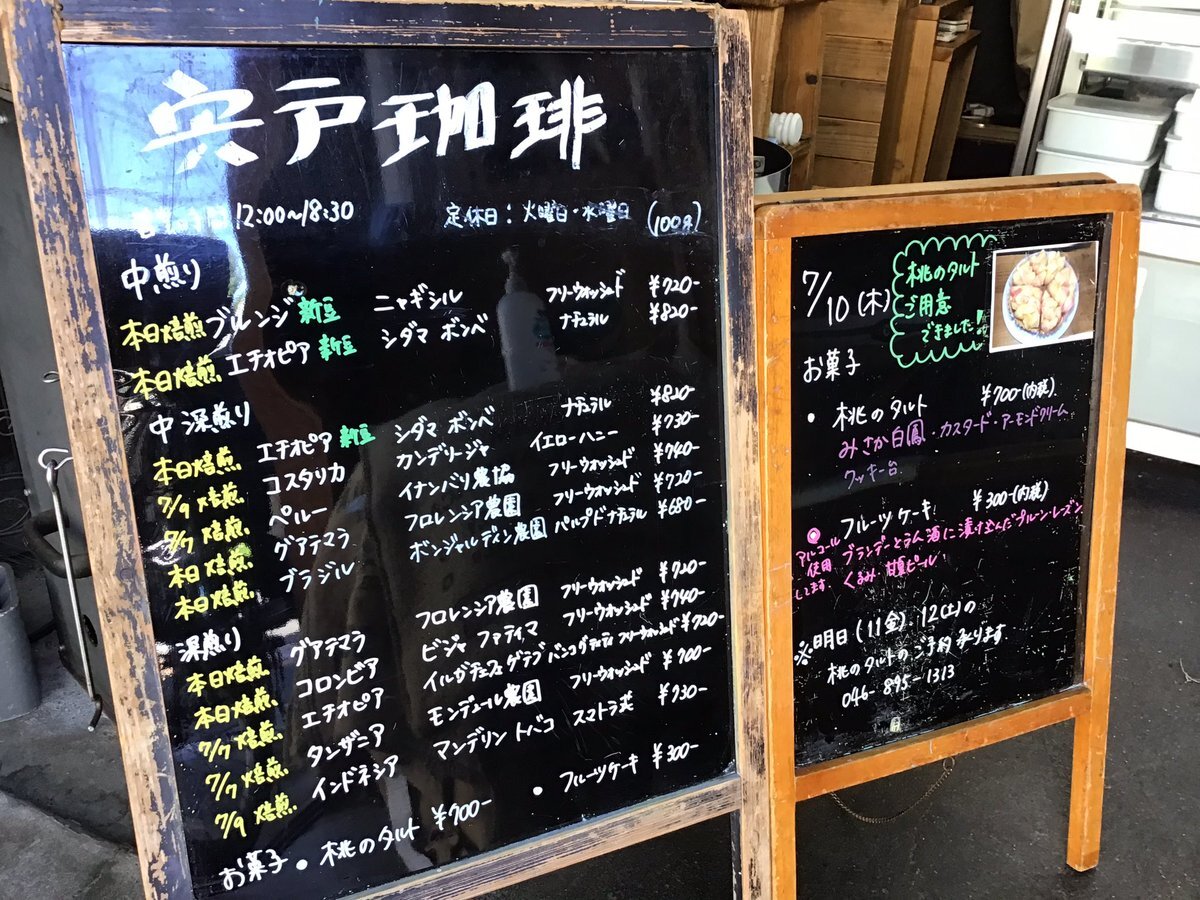 宍戸珈琲
12:00〜18:30 定休日：火曜日・水曜日 (100g)
中煎り
本日焙煎 ブルンジ 新豆 ニャギシル フリーウォッシュド ¥720-
本日焙煎 エチオピア 新豆 シダマ ボンベ ナチュラル ¥820-
中深煎り
本日焙煎 エチオピア 新豆 シダマ ボンベ ナチュラル ¥820-
7/9 焙煎 コスタリカ カンデリージャ イエローハニー ¥730-
7/7 焙煎 ペルー イナンバリ農協 フリーウォッシュド ¥740-
本日焙煎 グアテマラ フロレンシア農園 フリーウォッシュド ¥720-
本日焙煎 ブラジル ボンジャルディン農園 パルプドナチュラル ¥680-
深煎り
本日焙煎 グアテマラ フロレンシア農園 フリーウォッシュド ¥720-
本日焙煎 コロンビア ビジャ ファティマ フリーウォッシュド ¥740-
7/7 焙煎 エチオピア イルガチェフェ ゲデブ フリーウォッシュド ¥720-
7/7 焙煎 タンザニア モンデュール農園 フリーウォッシュド ¥700-
7/9 焙煎 インドネシア マンデリン トバコ スマトラ式 ¥730-
お菓子 • 桃のタルト ¥700- • フルーツケーキ ¥300-
7/10 (木)
桃のタルト
ご用意
できました!
お菓子
• 桃のタルト ¥700-(内税)
みさか白鳳・カスタード・アーモンドクリーム
クッキー台
◎ フルーツケーキ ¥300-(内税)
アルコール使用してます。
ブランデーとラム酒に漬け込んだプルーン・レーズン
くるみ、甘夏ピール
※明日(11金)、12(土)の
桃のタルトのご予約承ります
046-895-1313